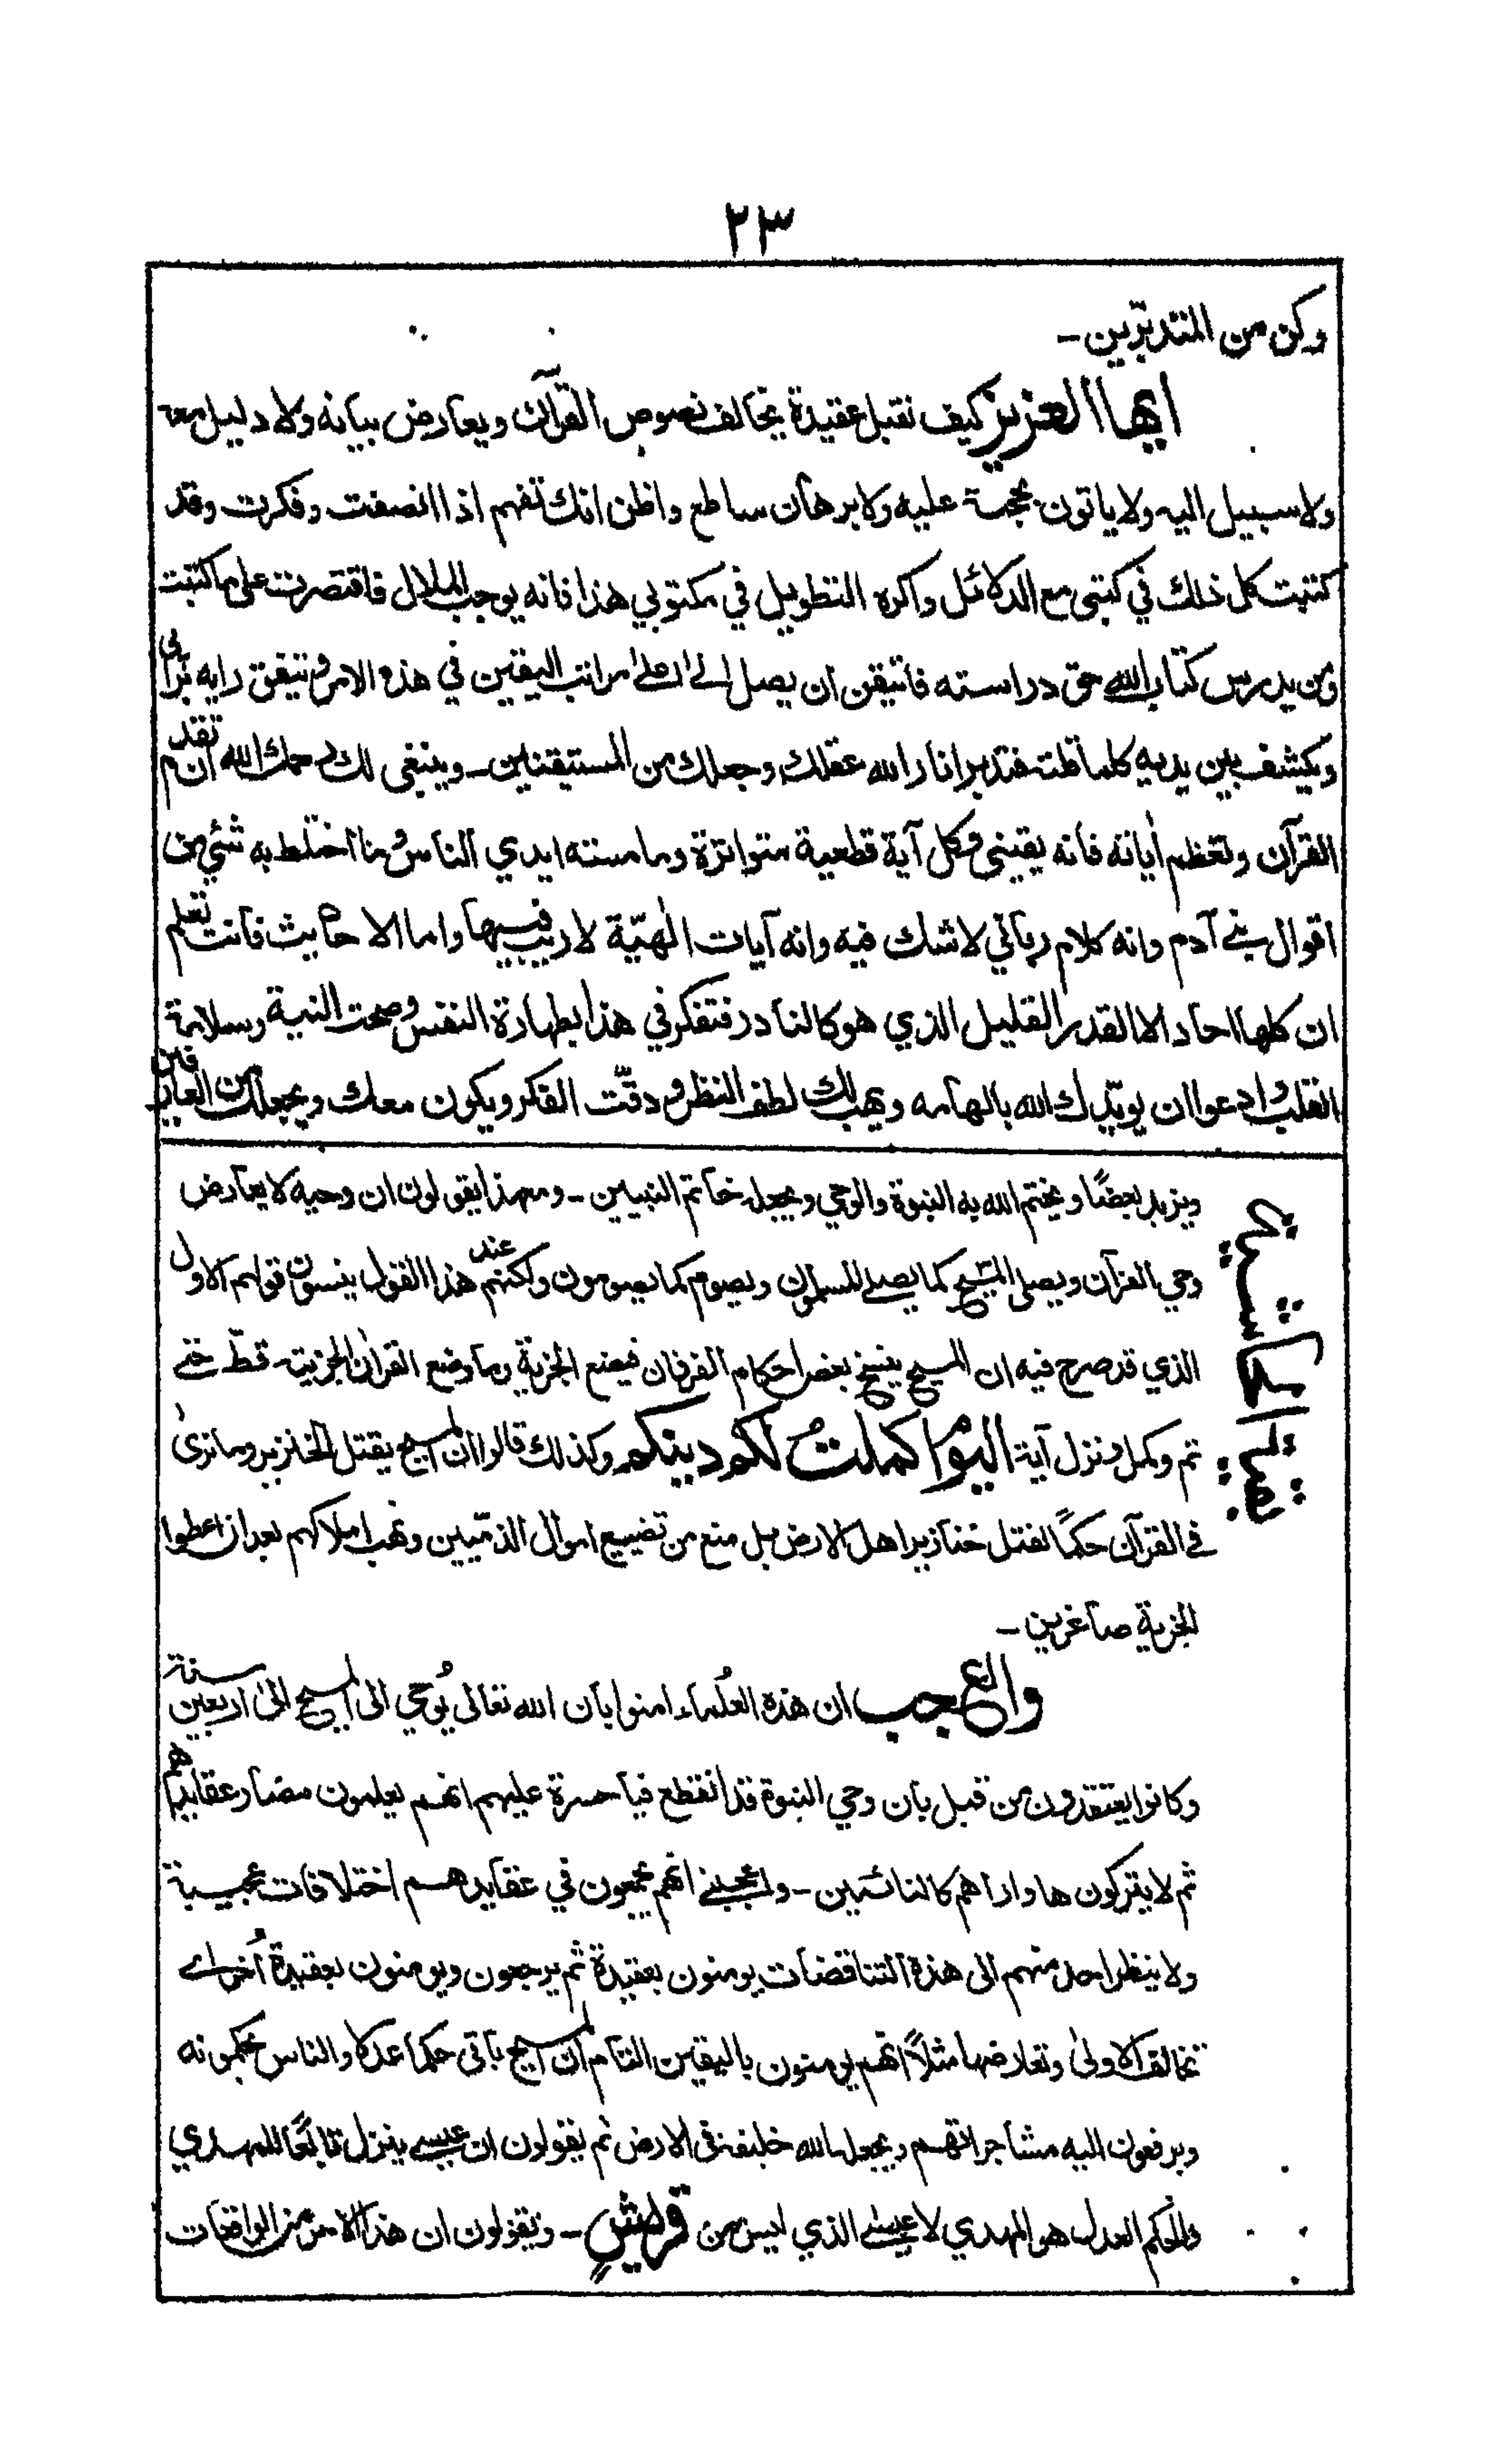 ٢٣
وكن من المتدبّرين -
ايها العزيز كيف نقبل عقيدة تخالف نصوص القرآن ويعارض بيانه ولا دليل معه
ولا سبيل اليه ولا ياتون بحجة عليه ولا برهان ساطع واظن انك تفهم اذا انصفت وفكرت وقد
كتبت كل ذلك في كتبي مع الدلائل واكره التطويل في مكتوبي هذا فانه يوجب الملال فاقتصرت على ما كتبت
ومن يدرس كتاب الله حق دراسته فاتيقن ان يصل الى اعلى مراتب اليقين في هذه الامر ويتفق رايه برائي
ويكشف بين يديه كلما قلت فتدبر انار الله عقلك وجعلك من المستيقنين - وينبغي لك رحمك الله ان تقدم
القرآن وتعظم اٰياته فانه يقيني وكل آية قطعية متواترة وما مسته ايدي الناس وما اختلط به شئ من
اقوال بني آدم وانه كلام رباني لا شك فيه وانه آيات الٰهيّة لا ريب فيها واما الاحاديث فانت تعلم
ان كلها احاد الا القدر القليل الذي هو كالنادر فتفكر في هذا بطهارة النفس وصحت النية وسلامة
القلب وادعوا ان يؤيّدك الله بالهامه ويهب لك لطف النظر ودقّت الفكر ويكون معك ويجعلك من العارفين
ويزيد بعضًا ويختم الله به النبوة والوحي ويجعله خاتم النبيين - ومع هذا يقولون ان وحيه لا يعارض
وحي القرآن ويصلي المسيح كما يصلى المسلمون ويصوم كما يصومون ولكنهم عند هذا القول ينسون قولهم الاول
الذي قد صرح فيه ان المسيح ينسخ بعض احكام الفرقان فيضع الجزية وما وضع القرآن الجزية قطّ حتى
تم وكمل ونزل آية اليوم اكملت لكم دينكم وكذلك قالوا ان المسيح يقتل الخنزير وما نرىٰ
في القرآن حكمًا لقتل خنازير اهل الارض بل منع من تضييع اموال الذمّيين ونهب املاكهم بعد ان اعطوا
الجزية صاغرين -
والعجب ان هذه العُلماء امنوا بان الله تعالى يُوحي الى المسيح الى اربعين سنة
وكانوا يعتقدون من قبل بان وحي النبوة قد انقطع فيا حسرة عليهم انهم يعلمون مضار عقايدهم
ثم لا يتركون ها وارا هم كالنائمين - واعجبني انهم يجمعون في عقايدهم اختلافات عجيبة
ولا ينظر احد منهم الى هذه التناقضات يومنون بعقيدة ثم يرجعون ويومنون بعقيدة أخرى
تخالف الاولىٰ وتعارضها مثلاً انهم يومنون باليقين التام ان المسيح ياتي حكما عدلا والناس يحكمونه
ويرفعون اليه مشاجراتهم ويجعله الله خليفة في الارض ثم يقولون ان عيسى ينزل تابعًا للمهدي
والحكم العدل هو المهدي لا عيسى الذي ليس من قريش - ويقولون ان هذا الامر من الواقعات